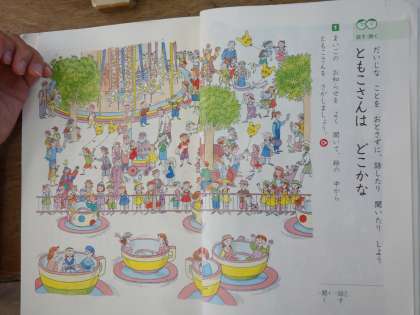 話す・聞く
だいじな ことを おとさずに、話したり 聞いたり しよう
ともこさんは どこかな
1 まいごの お知らせを よく 聞いて、絵の 中から
ともこさんを さがしましょう。